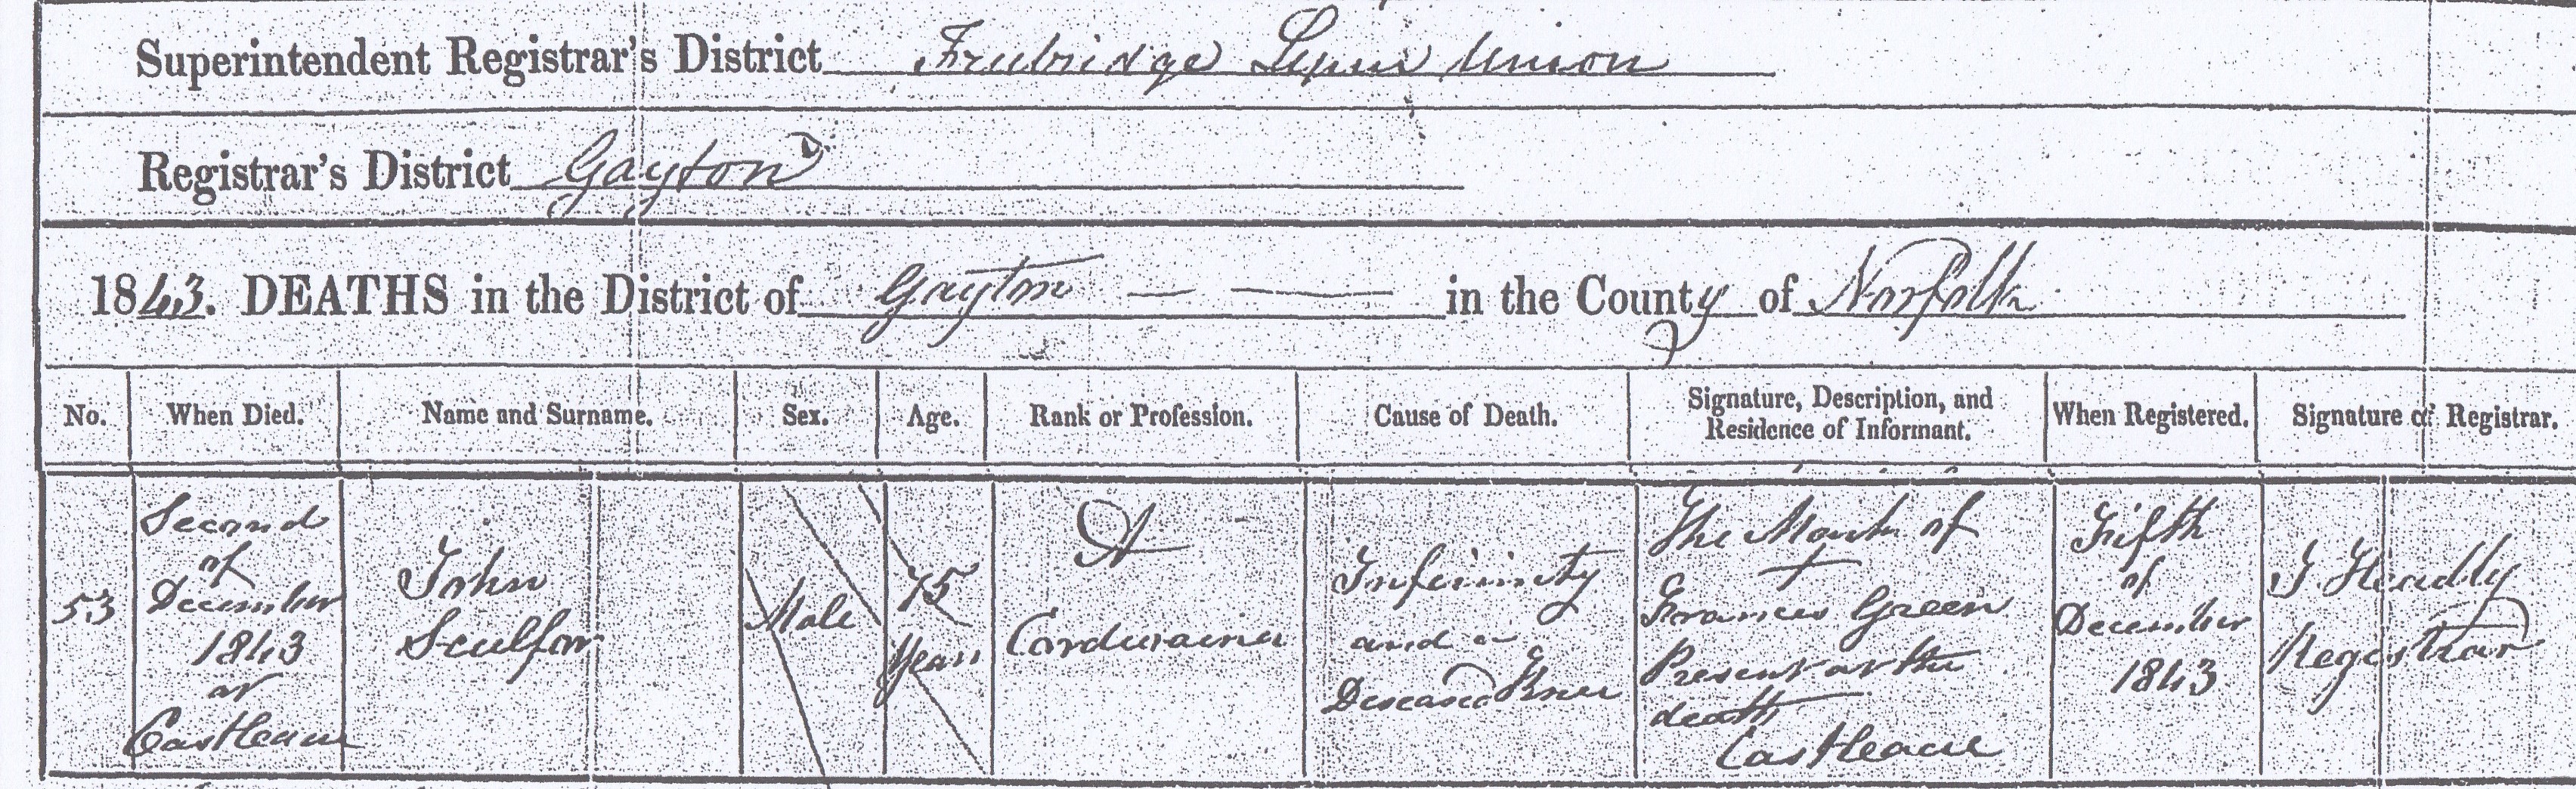 Superintendent Registrar's District Freebridge Lynn Union
Registrar's District Gayton
1843. DEATHS in the District of Gayton in the County of Norfolk
No. When Died. Name and Surname. Sex. Age. Rank or Profession. Cause of Death. Signature, Description, and Residence of Informant. When Registered. Signature of Registrar.
53
Second
of
December
1843
at
Castleacre
John
Sculfor
Male
75
Years
A
Cordwainer
Infirmity
and a
Deseased Knee
The Mark of
+
Frances Green
Present at the
death
Castleacre
Fifth
of
December
1843
J. Headly
Registrar